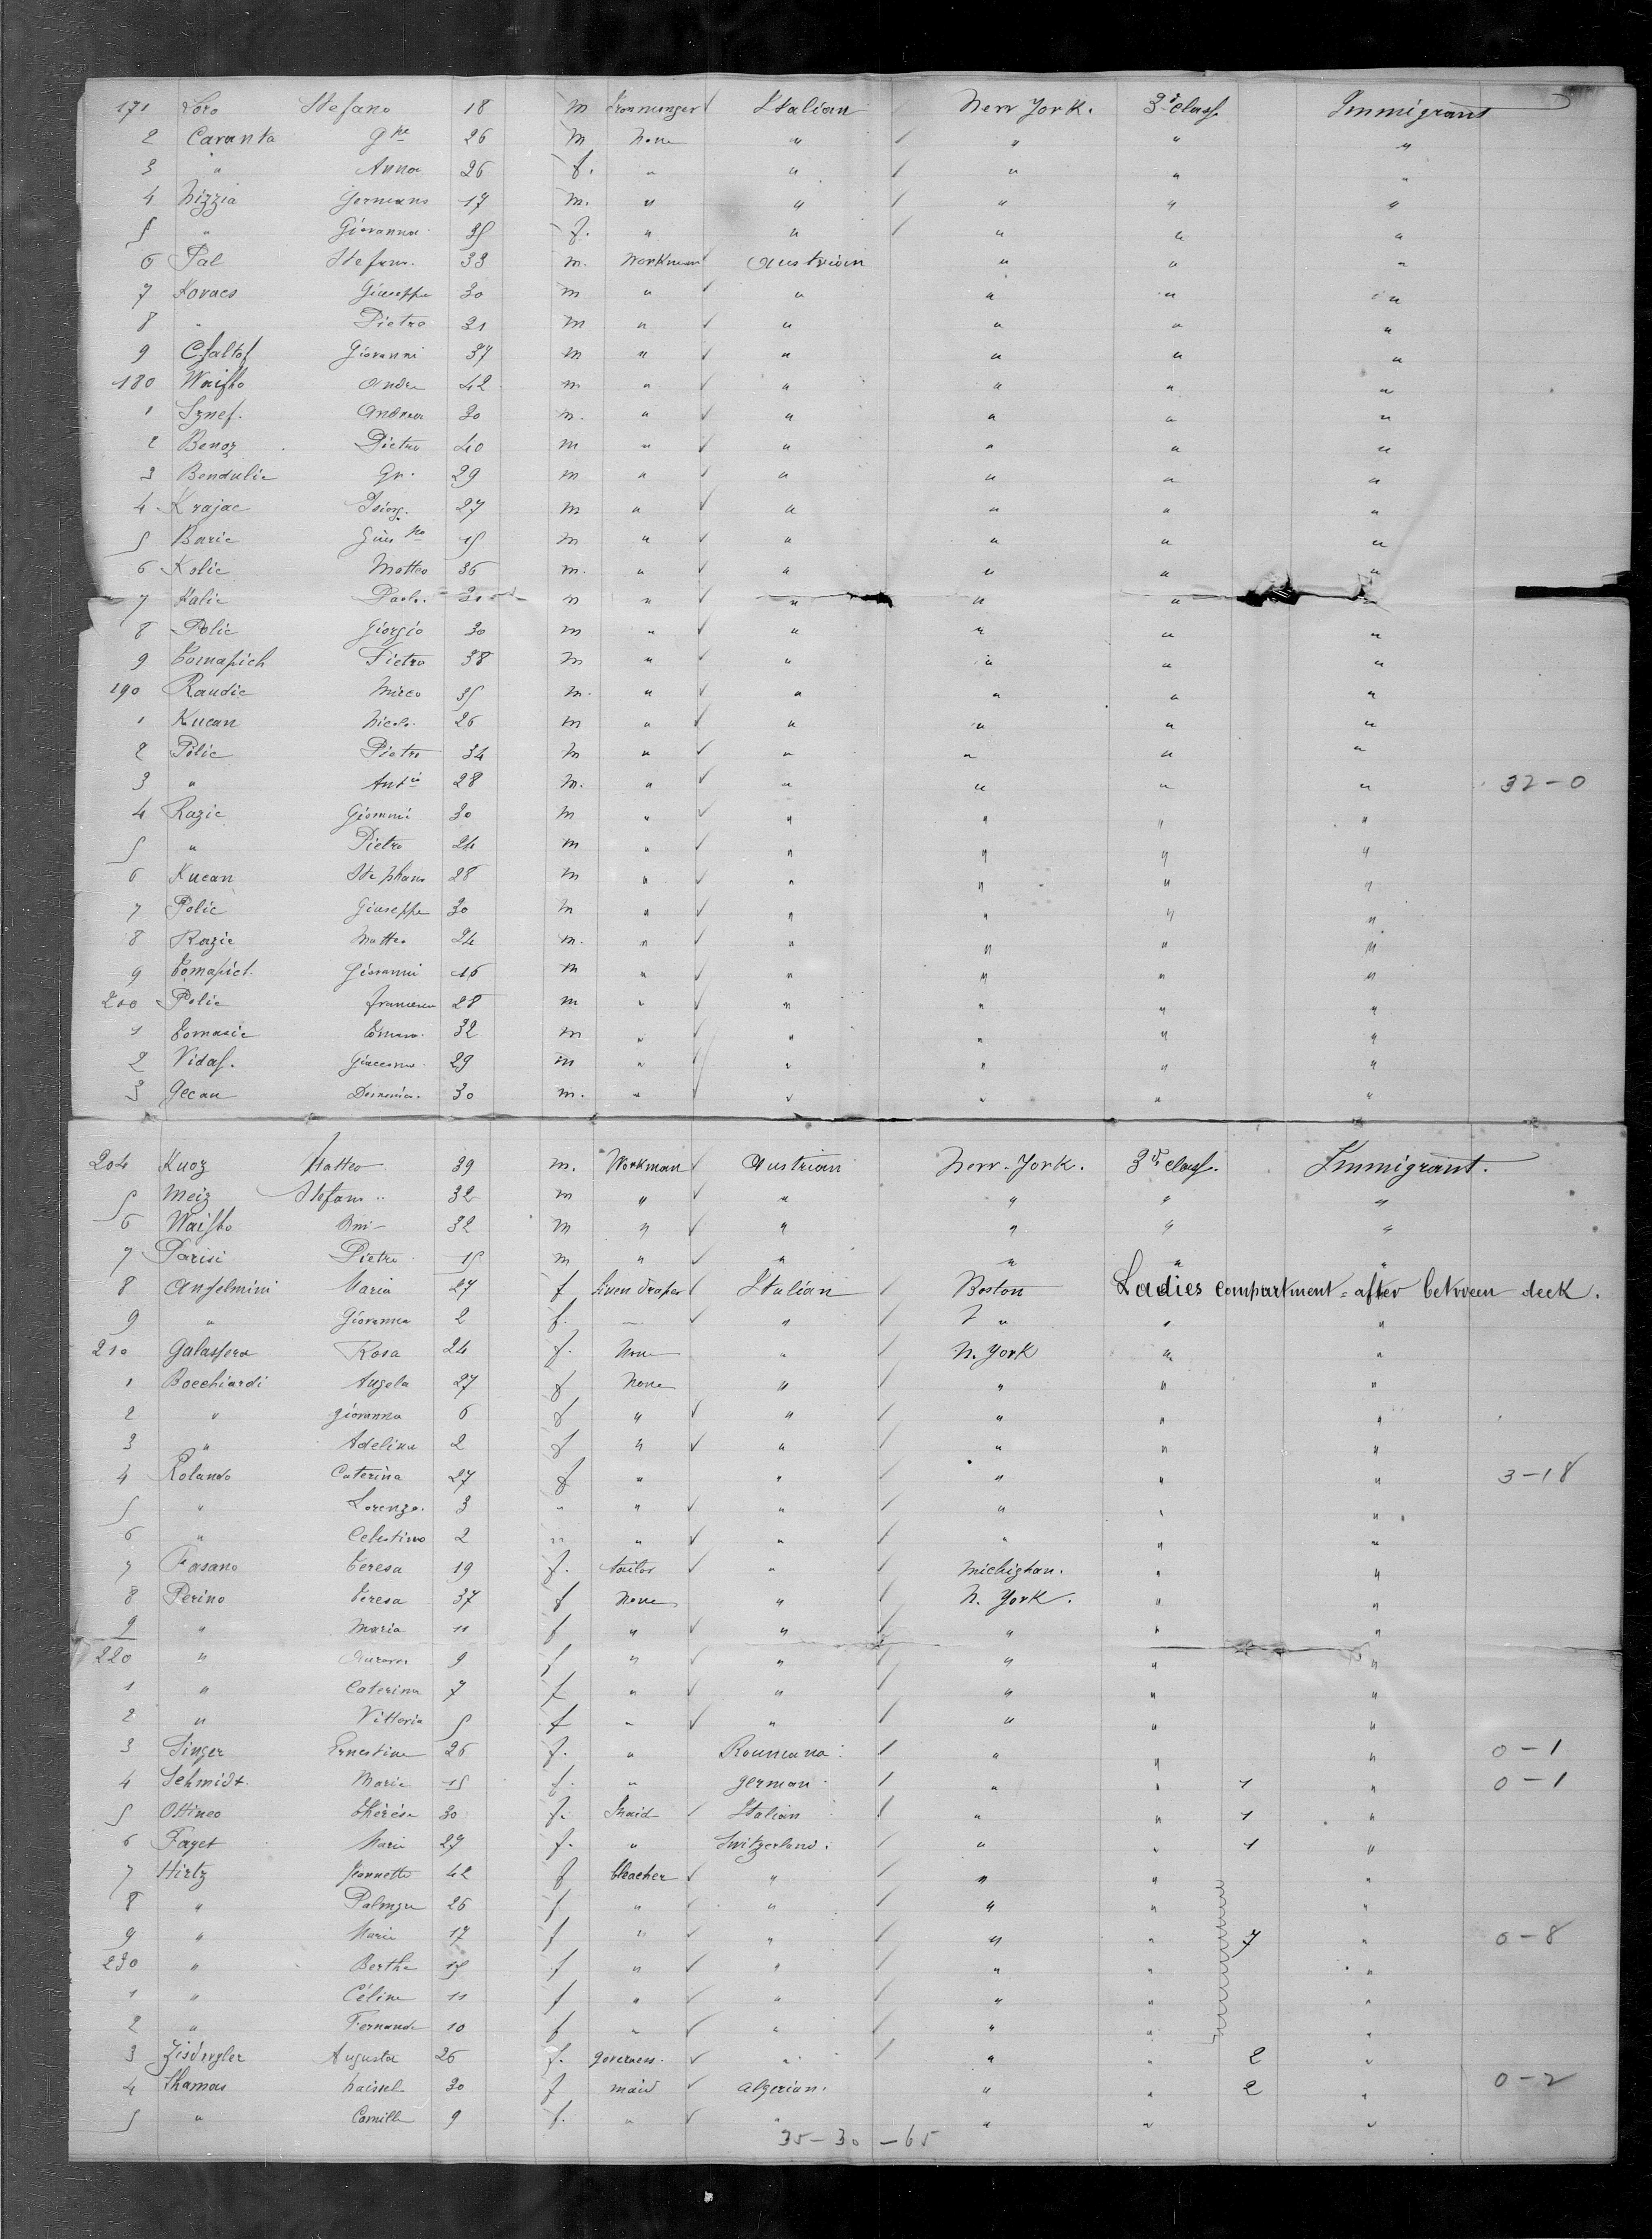 171 Loro Stefano 18 m Ironmunger Italian New York. 3d class. Immigrant
2 Caranta Gpe 26 m None " " " "
3 " Anna 26 f. " " " " "
4 Nizzia Germano 17 m. " " " " "
5 " Giovanna 35 f. " " " " "
6 Pal Stefano. 33 m. Workman Austrian " " "
7 Kovacs Giuseppe 30 m " " " " "
8 " Pietro 31 m " " " " "
9 Giovanni 37 m " " " " "
180 Waissho Andrea 42 m " " " " "
1 Andrea 30 m. " " " " "
2 Benoz Pietro 40 m " " " " "
3 Bendulic Gn. 29 m " " " " "
4 Krajac 27 m " " " " "
5 Baric 15 m " " " " "
6 Kolic Matteo 36 m. " " " " "
7 Kalic Paolo. 30 m " " " " "
8 Polic Giorgio 30 m " " " " "
9 Tomasich Pietro 38 m " " " " "
190 Randic Mirco 35 m. " " " " "
1 Kucan Nicolo. 26 m " " " " "
2 Polic Pietro 34 m " " " " "
3 " Antio 28 m. " " " " " 32-0
4 Razic Giovanni 30 m " " " " "
5 " Pietro 24 m " " " " "
6 Kucan Stephano 28 m " " " " "
7 Polic Giuseppe 30 m " " " " "
8 Razic Matteo 24 m. " " " " "
9 Tomasich. Giovanni 16 m " " " " "
200 Polic Francesco 28 m " " " " "
1 Tomasic Tomaso. 32 m " " " " "
2 Vidas. Giacomo. 29 m " " " " "
3 Gecan Domenico. 30 m. " " " " "
204 Kuoz Matteo 39 m. Workman Austrian New-York. 3d class. Immigrant.
5 Meiz Stefano 32 m " " " " "
6 Waissho 32 m " " " " "
7 Parisi Pietro 15 m " " " " "
8 Anselmini Maria 27 f Linen draper Italian Boston Ladies compartment = after between deck.
9 " Giovanna 2 f. — " " " "
210 Galaspera Rosa 24 f. None " N. York " "
1 Bocchiardi Angela 27 f None " " " "
2 " Giovanna 6 f " " " " "
3 " Adelina 2 f " " " " "
4 Rolando Caterina 27 f " " " " " 3-18
5 " Lorenzo. 3 " " " " " "
6 " Celestino 2 " " " " " "
7 Fasano Teresa 19 f. tailor " Michighan. " "
8 Perino Teresa 37 f None " N. York. " "
9 " Maria 11 f " " " " "
220 " Aurora 9 f " " " " "
1 " Caterina 7 f " " " " "
2 " Vittoria 5 f " " " " "
3 Singer Ernestine 26 f. " Roumana " " " 0-1
4 Schmidt. Marie 15 f. " German. " " 1 " 0-1
5 Ottineo Thérése 30 f. Maid Italian " " 1 "
6 Faget Marie 27 f. " Switzerland. " " 1 "
7 Hirtz Jeannette 42 f bleacher " " " "
8 " Palmyre 26 f " " " " "
9 " Marie 17 f " " " " 7 " 0-8
230 " Berthe 15 f " " " " "
1 " Céline 11 f " " " " "
2 " Fernande 10 f " " " " "
3 Augusta 26 f. governess. " " " 2 "
4 Thomas 30 f maid algerian. " " 2 " 0-2
5 " Camille 9 f. " " " " "
35-30-65